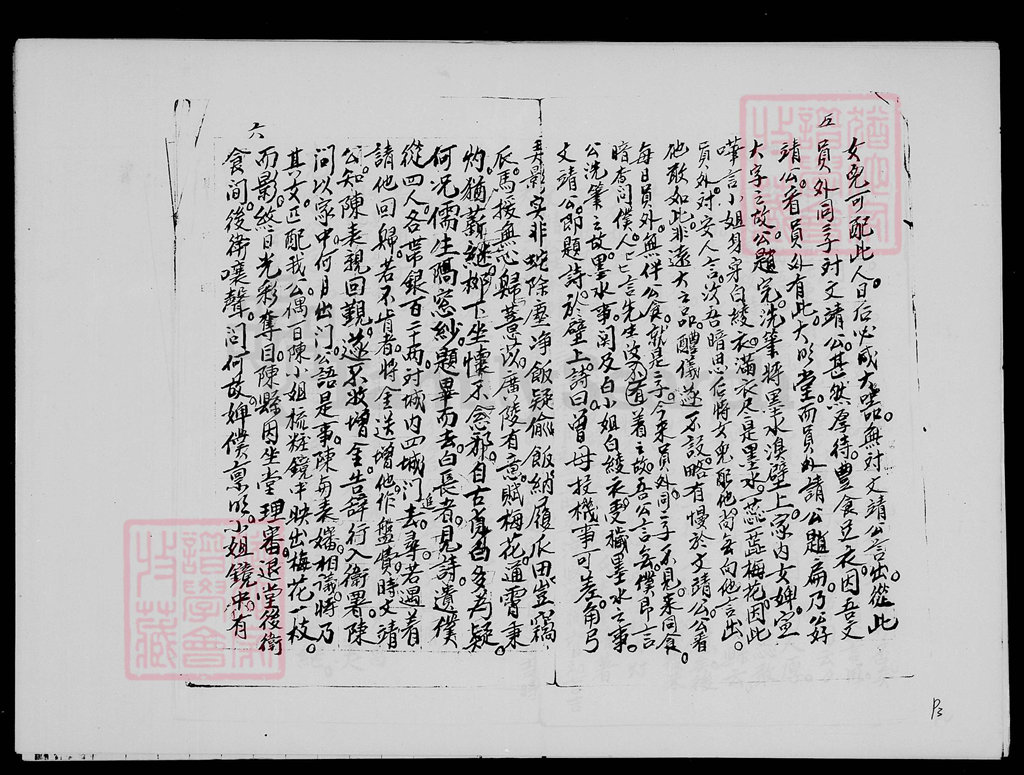 女兒可配此人日后必成大器無對文靖公言出從此
五
員外同三子對文靖公甚然厚待豊食足衣因吾文
靖公看員外有此大明堂而員外請公題扁乃好
大字之故公題完洗筆將墨水潑壁上家內女婢宣
嘩言小姐身穿白綾衣滿衣尺是墨水蕊蕊梅花因此
員外對安人言汝吾暗思后將女兒配他尚無向他言出
他敢如此非遠大之品醴儀遂不設略有慢於文靖公公看
每日員外無伴公食就是三子今來員外同三子不見來同食
暗查問僕人言先生汝不有着之故吾公言無僕即言
公洗筆之故墨水事関及白小姐白綾衣更穢墨水之事
文靖公即題詩於壁上詩曰曽母投機事可差角弓
弄影实非蛇除塵净飯疑偷飯納履瓜田豈竊
瓜馬援無心歸薏苡广陵有意賦梅花通霄秉
灼猶薪越柳下坐懷不念邪自古貞白多为疑
何况儒生隔窓紗題畢而去白長者見詩遺僕
從四人各帶銀百二両對城内四城门進去尋若遇着
請他回歸若不肯者將金送增他作盤費時文靖
公知陳表親回覲遂不收增金告辞行入衙署陳
問以家中何月出门公語是事陳與妻媾相議將乃
其女匹配我公偶一日陳小姐梳粧鏡中映出梅花一枝
六
而影終日光彩奪目陳縣因坐堂理審退堂後衙
食间後衙嚷聲问何故婢僕禀明小姐鏡中有
P3